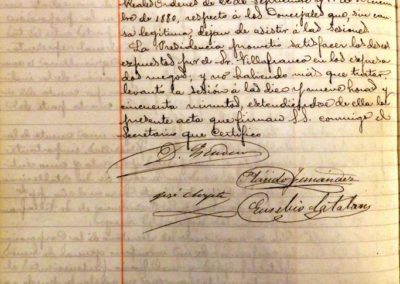 Reales Ordenes de
bro de 1880, respecto á los Concejales que, sin cau
sa legitima, dejan de asistir á las sesiones
La Presidencia prometió satisfacer los deseos
expuestos por el Sr. Villafranca en los expresa
dos ruegos, y no habiendo más que tratar
levantó la sesión á las diez horas y
cincuenta minutos, extendiéndose de ella la
presente acta que firman S.S. conmigo el
Secretario que certifico
Plácido Fernández
José
Eusebio Catalan